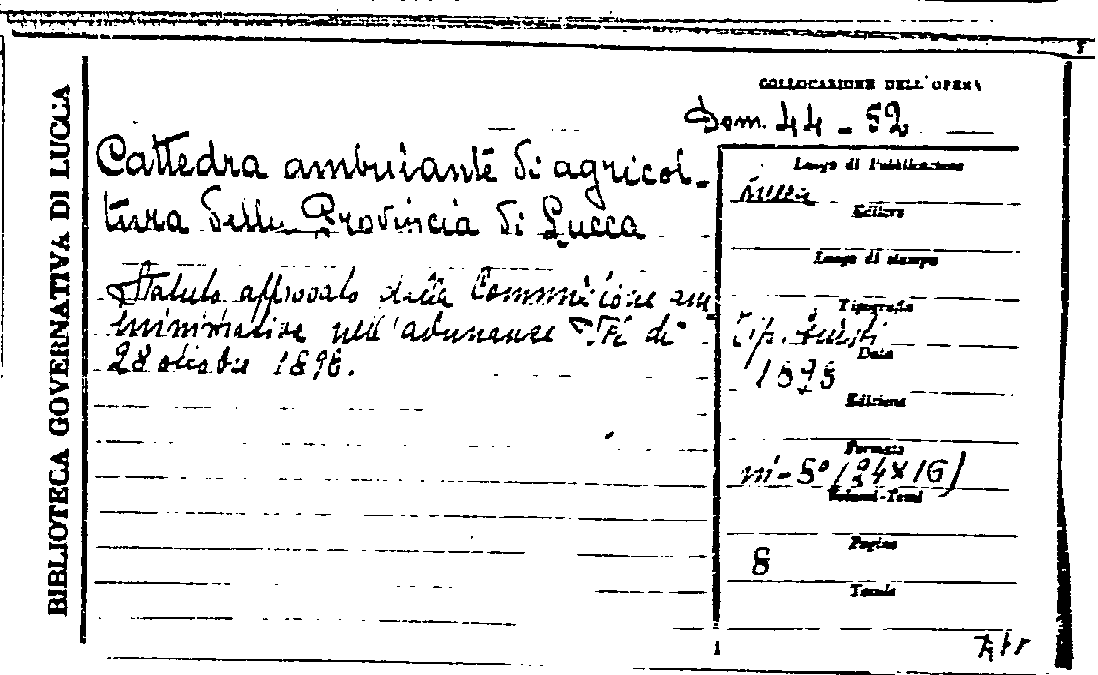 BIBLIOTECA GOVERNATIVA DI LUCCA
COLLOCAZIONE DELL'OPERA
Dom. 44 - 52
Cattedra ambulante di agricol-
tura della Provincia di Lucca
Statuto approvato dalla Commissione am
ministrativa nell'adunanza di
28 ottobre 1898.
Luogo di Pubblicazione
Lucca
Editore
Luogo di stampa
Tipografia
Tip. Giusti
Data
1898
Edizione
Formato
in-8° (24 x 16)
Volumi-Tomi
Pagine
8
Tavole
1